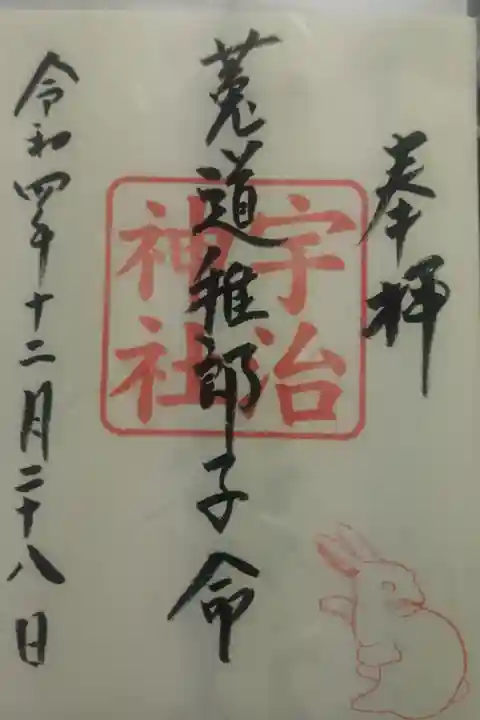 奉拝
宇治
神社
菟道稚郎子命
令和四年十二月二十八日